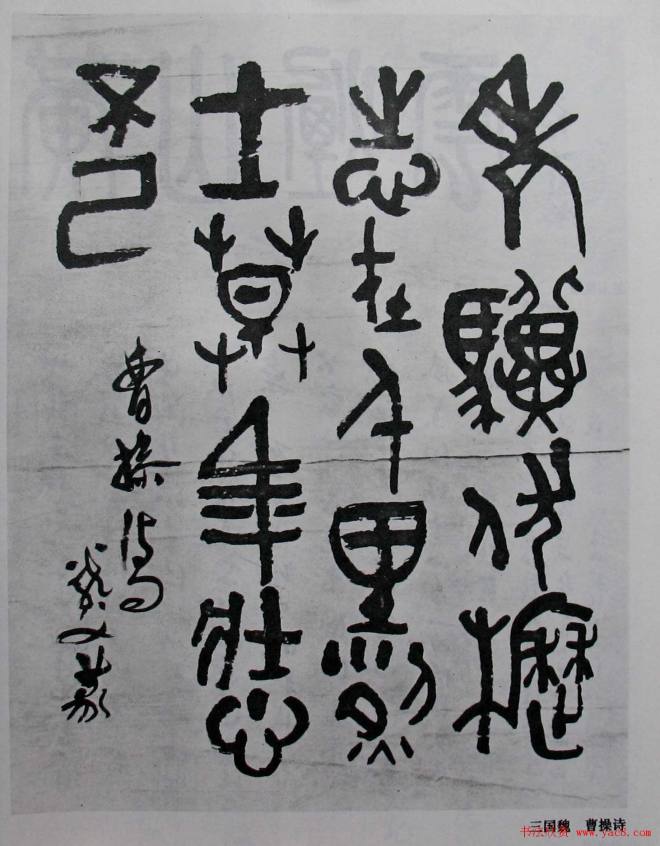 老驥伏櫪
志在千里烈
士莫年壯心
不已
曹操詩
三国魏 曹操诗
书法欣赏 www.yac8.com